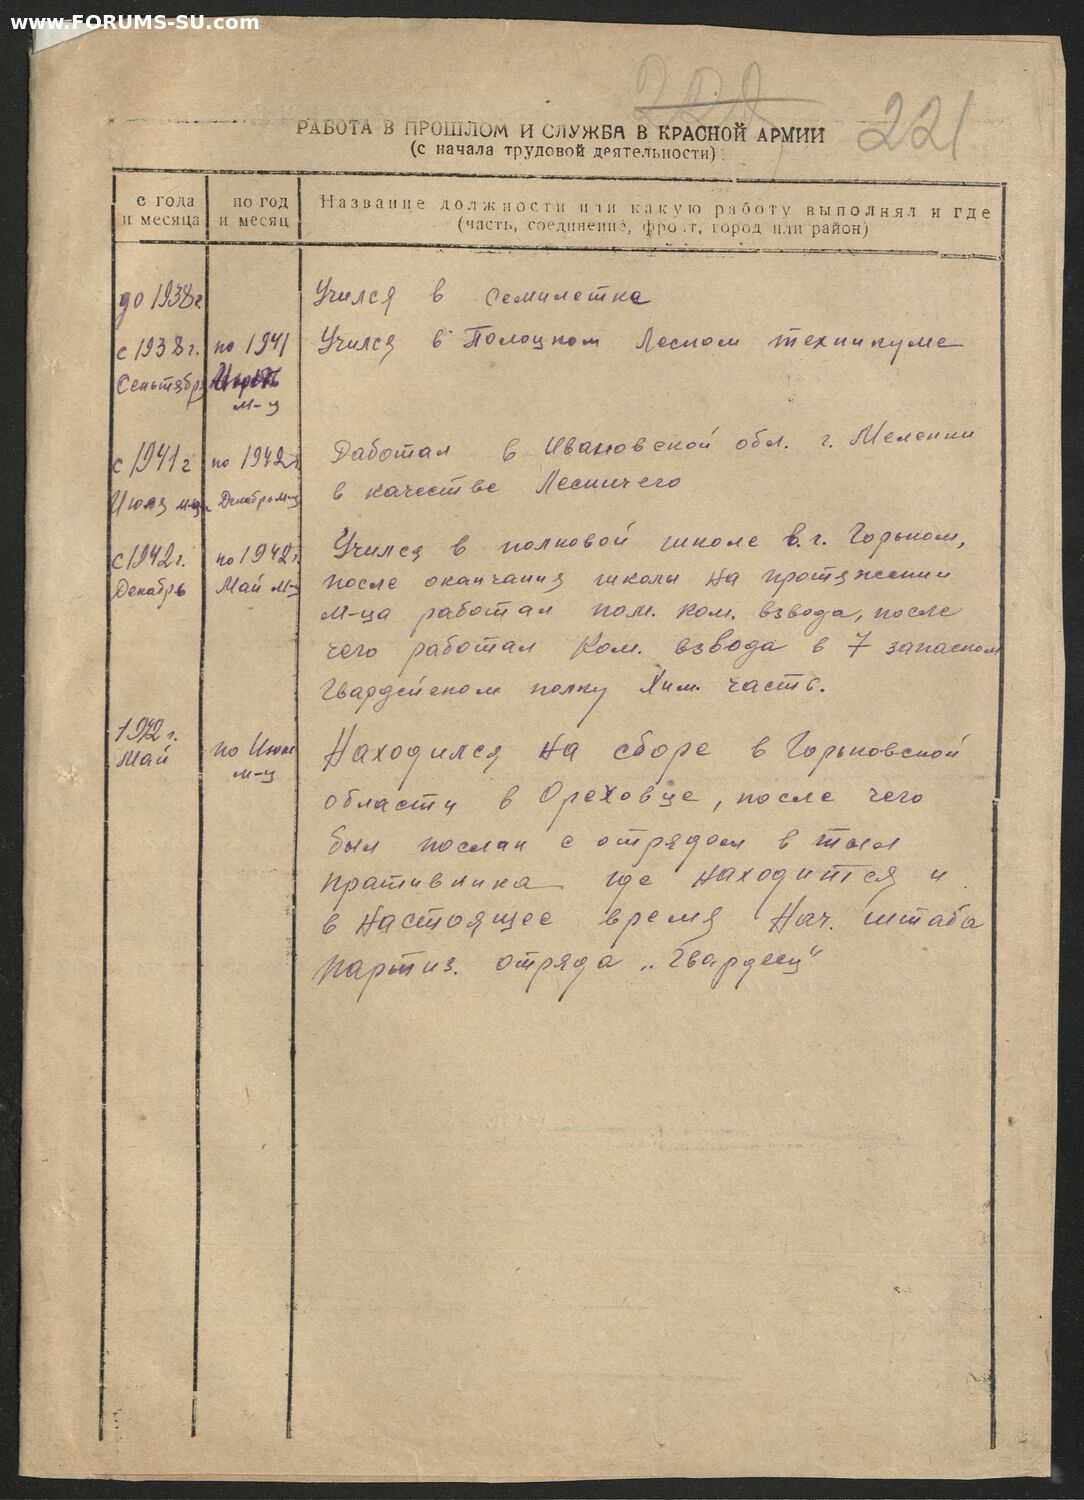 www.FORUMS-SU.com
221
РАБОТА В ПРОШЛОМ И СЛУЖБА В КРАСНОЙ АРМИИ
(с начала трудовой деятельности)
с года и месяца
по год и месяц
Название должности или какую работу выполнял и где
(часть, соединение, фронт, город или район)
до 1938 г. Учился в семилетке
с 1938 г. по 1941 Учился в Полоцком Лесном техникуме
Сеньтябрь
м-ц
с 1941 г по 1942 г. Работал в Ивановской обл. г. Меленки
Июля м-ца Декабрь м-ц в качестве Лесничего
с 1942 г. по 1942 г. Учился в полковой школе в. г. Горьком,
Декабрь Май м-ц после окончания школы на протяжении
м-ца работал пом. ком. взвода, после
чего работал Ком. взвода в 7 запасном
Гвардейском полку Хим. часть.
1942 г.
Май по Июнь м-ц Находился на сборе в Горьковской
области в Ореховце, после чего
был послан с отрядом в тыл
противника где находится и
в настоящее время Нач. штаба
партиз. отряда „Гвардеец"